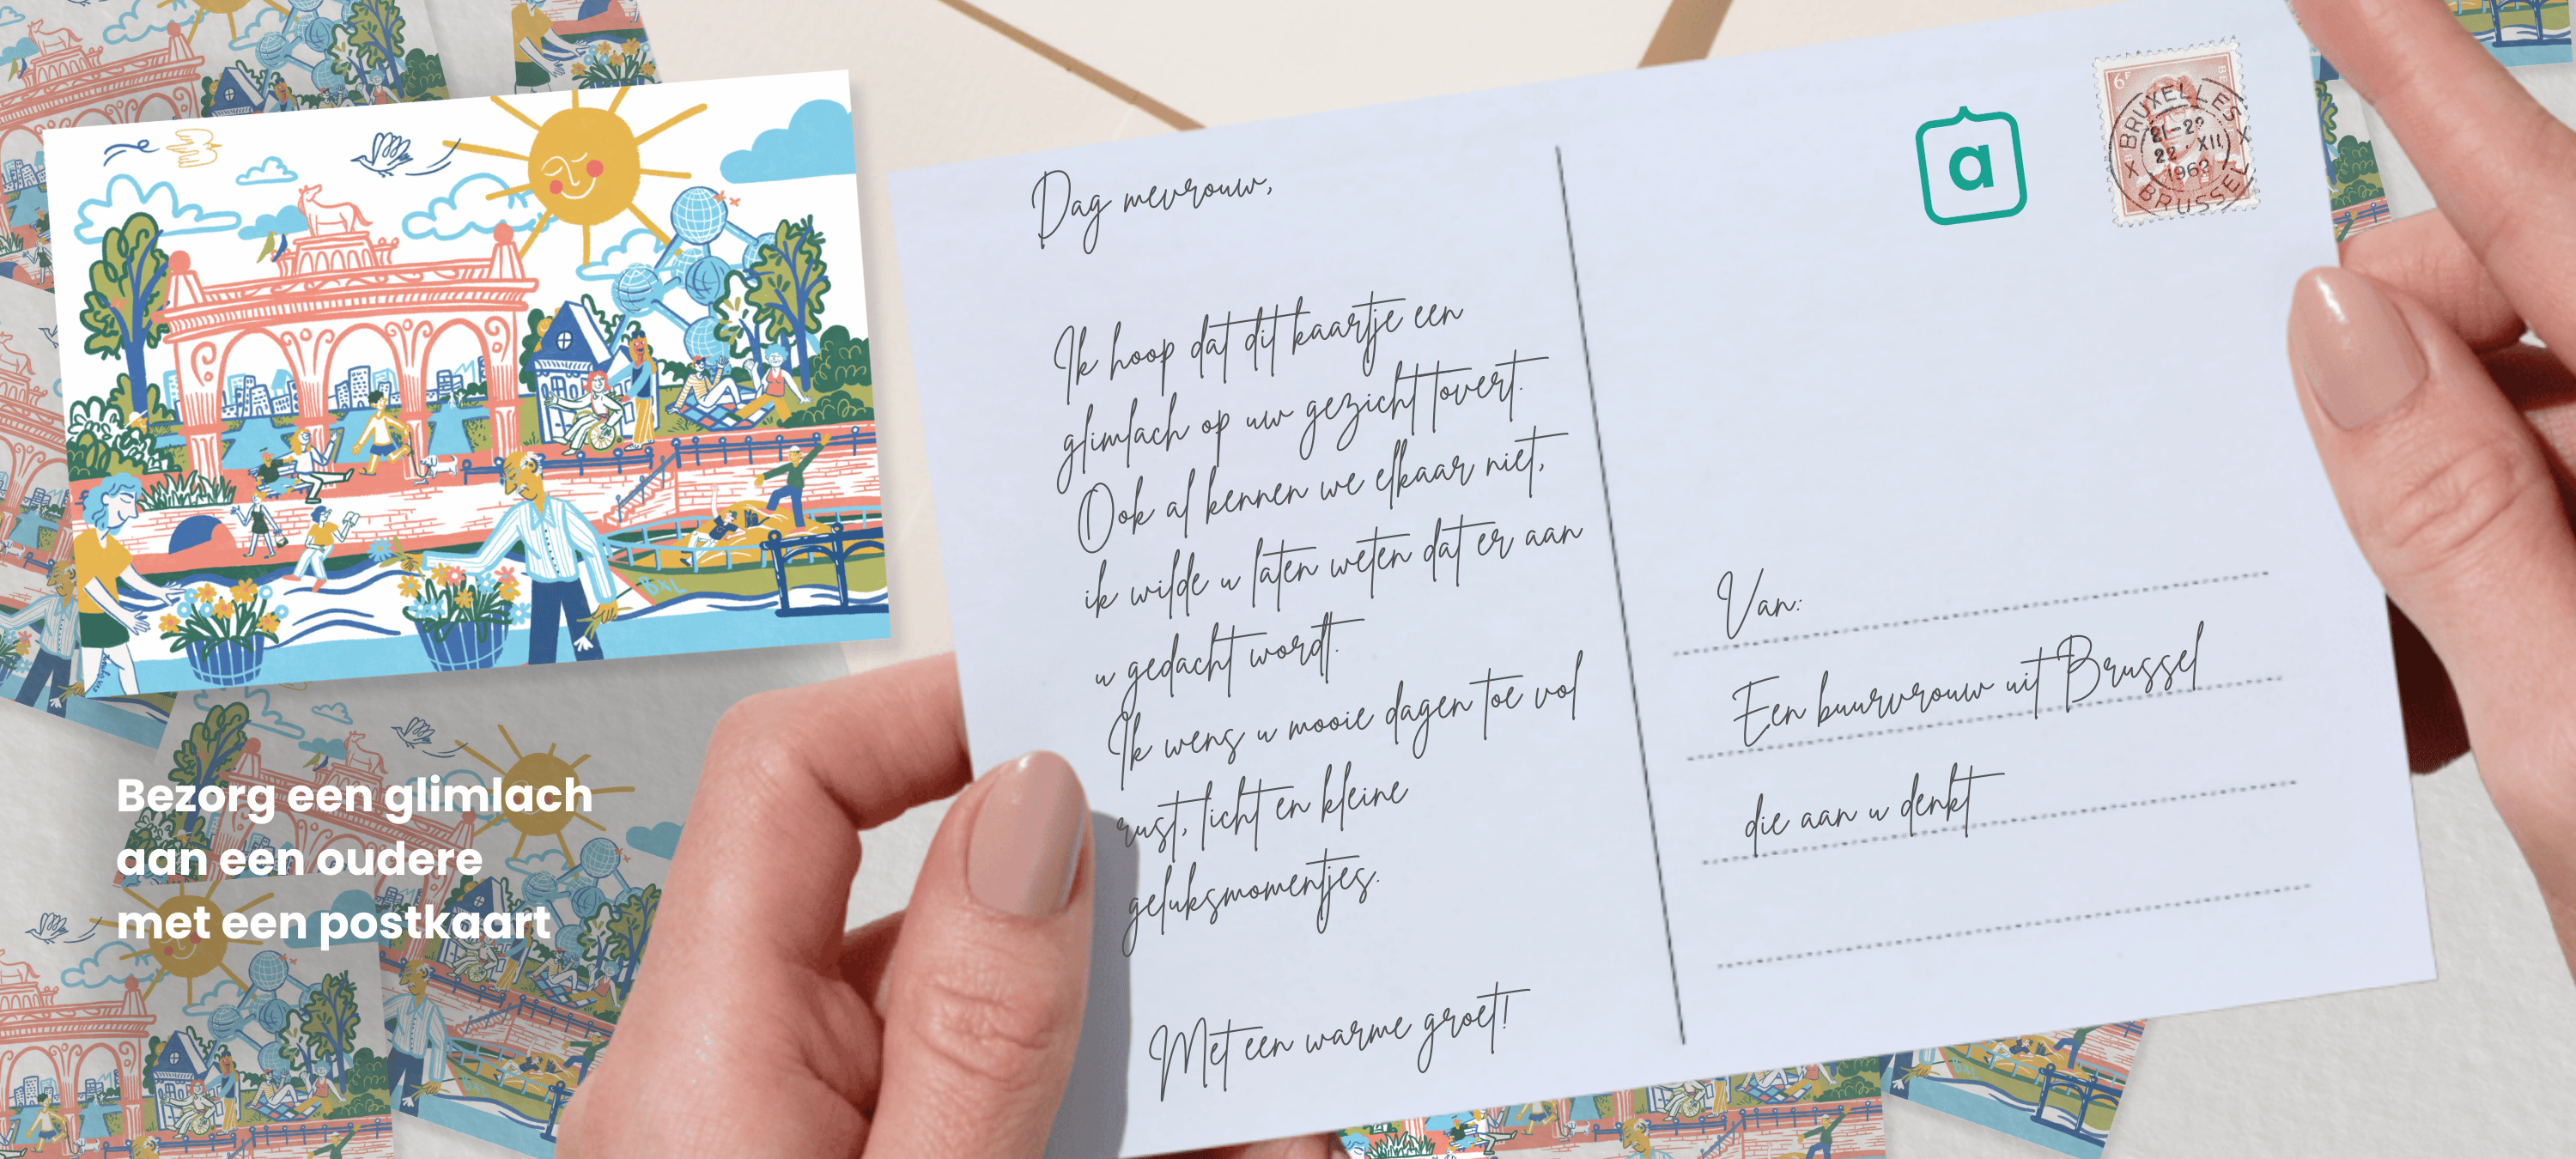 Dag mevrouw,
Ik hoop dat dit kaartje een
glimlach op uw gezicht tovert.
Ook al kennen we elkaar niet,
ik wilde u laten weten dat er aan
u gedacht wordt.
Ik wens u mooie dagen toe vol
rust, licht en kleine
geluksmomentjes.
Met een warme groet!
a
6F
BRUXELLES
21-22
22 XII
196
BRUSSEL
Van:
Een buurvrouw uit Brussel
die aan u denkt
BXL
Bezorg een glimlach
aan een oudere
met een postkaart